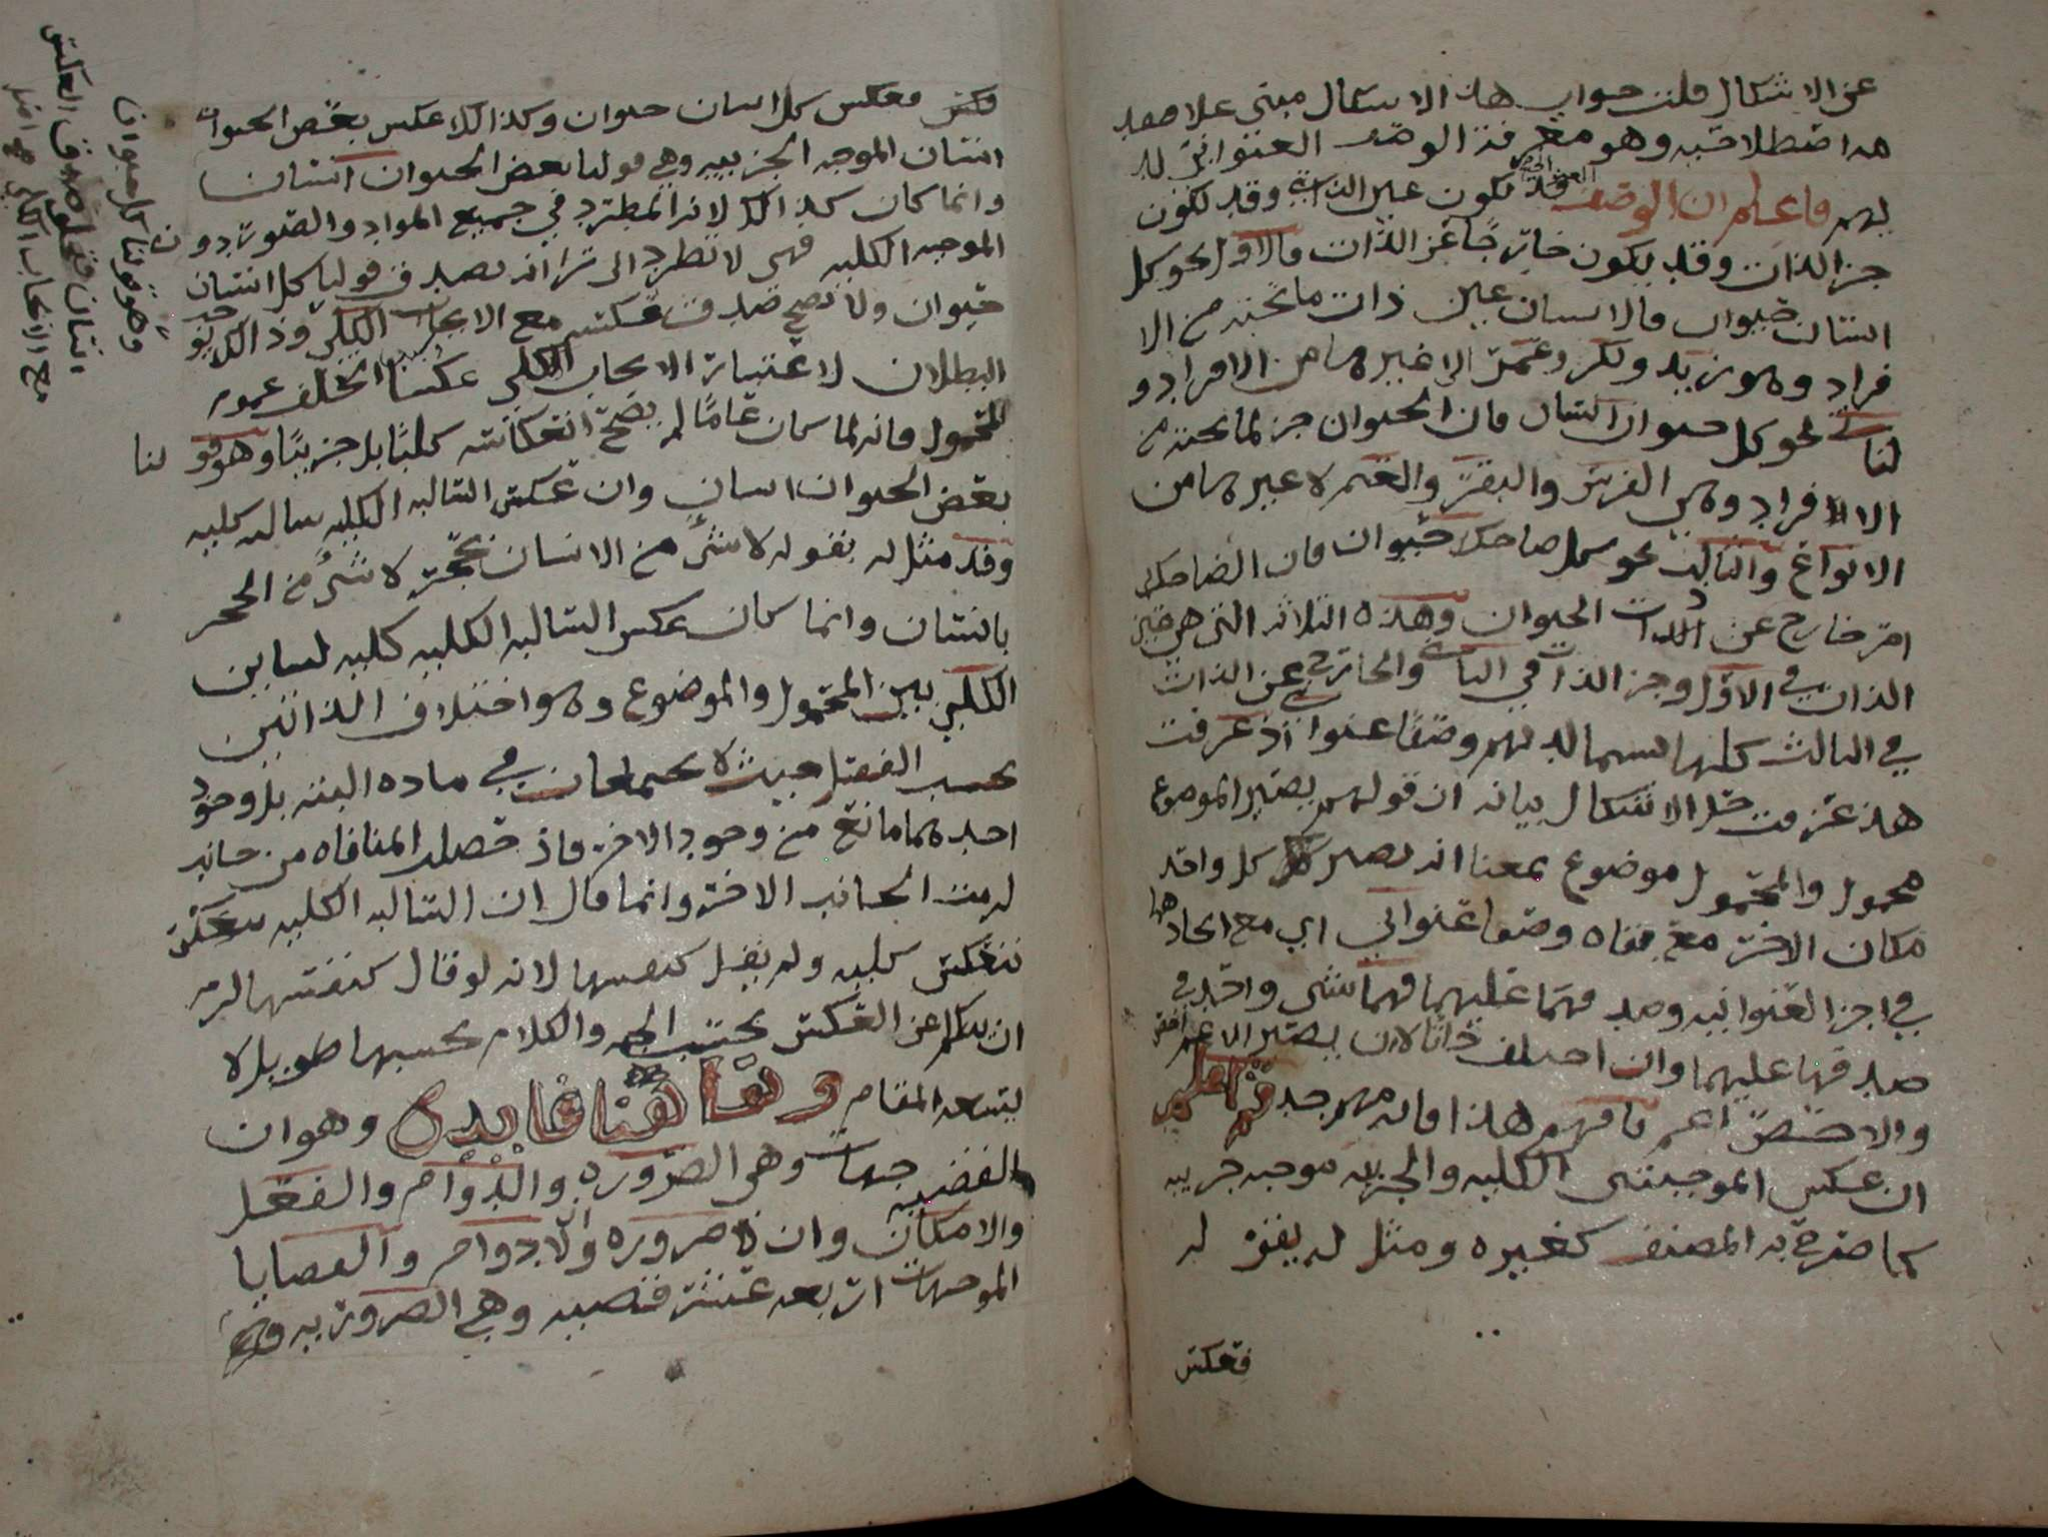 عن الاشكال قلت جواب هذا الاشكال مبني على
هه اصطلاحيه وهو معرفة الوصف العنواني
لهم فاعلم ان الوصف قد يكون عين الذات وقد يكون
جز الذات وقد يكون خارجًا عن الذات فالاول نحو كل
انسان حيوان فالانسان عين ذات ما تحته من الا
فراد وهو زيد وبكر وعمر الى غيرها من الافراد و
الثاني نحو كل حيوان انسان فان الحيوان جز لما تحته من
الا فراد وهي الفرس والبقر والغنم لا غيرها من
الانواع والثالث نحو كل ضاحك حيوان فان الضاحك
امر خارج عن الذات الحيوان وهذه الثلاثه التي هي عين
الذات في الاول وجز الذات في الثاني والخارج عن الذات
في الثالث كلها يسما لديهم وصفًا عنوا اذ عرفت
هذا عرفت حل الاشكال بيانه ان قولهم يصير الموضوع
محمول والمحمول موضوع بمعنا انه يصير كل واحد
مكان الاخر مع بقاه وصفا عنواني اي مع اتحادهما
في اجزا العنوانيه وصدقهما عليهما فهما شي واحد في
صدقها عليهما وان اختلف ذاتا لان يصير الاعم اخص
والاخص اعم فافهم هذا فانه مهم جد ثم اعلم
ان عكس الموجبتي الكليه والجزئيه موجبه جزييه
كما صرح به المصنف كغيره ومثل له بقوله
فعكس
فعكس كل انسان حيوان وكذالك عكس بعض الحيوان
انسان الموجبه الجزييه وهي قولنا بعض الحيوان انسان
وانما كان كذالك لانه المطرد في جميع المواد والصور دون
الموجبه الكليه فهي لا تطرد الى ترا انه يصدق قولنا كل انسان
حيوان ولا يصح صدق عكسه مع الايجاب الكلي وذالك
البطلان لاعتبار الايجاب الكلي عكسا لتخلف عموم
المحمول فانه لما كان عامًا لم يصح انعكاسه كليًا بل جزييًا وهو قولنا
بعض الحيوان انسان وان عكس السالبه الكليه سالبه كليه
وقد مثل له بقوله لا شي من الانسان بحجر لا شي من الحجر
بانسان وانما كان عكس السالبه الكليه كليه لتباين
الكلي بين المحمول والموضوع وهو اختلاف الذاتين
بحسب الفصل حيث لا يجتمعان في ماده البته بل وجود
احدهما مانع من وجود الاخر فاذ حصلت المنافاه من جانب
لزمت الجانب الاخر وانما قال ان السالبه الكليه تنعكس
تنعكس كليه ولم يقل كنفسها لانه لو قال كنفسها لزم
ان يتكلم عن العكس بحسب الجهه والكلام بحسبها طويل لا
يسعه المقام وها هنا فايده وهو ان
القضيه جهات وهي الضروره والدوام والفعل
والامكان وان لا ضروره ولا دوام والقضايا
الموجهات اربعه عشر قضيه وهي الضروريه
وهو قولنا كل حيوان
انسان فتخلف صدق العكس
مع الايجاب الكلي